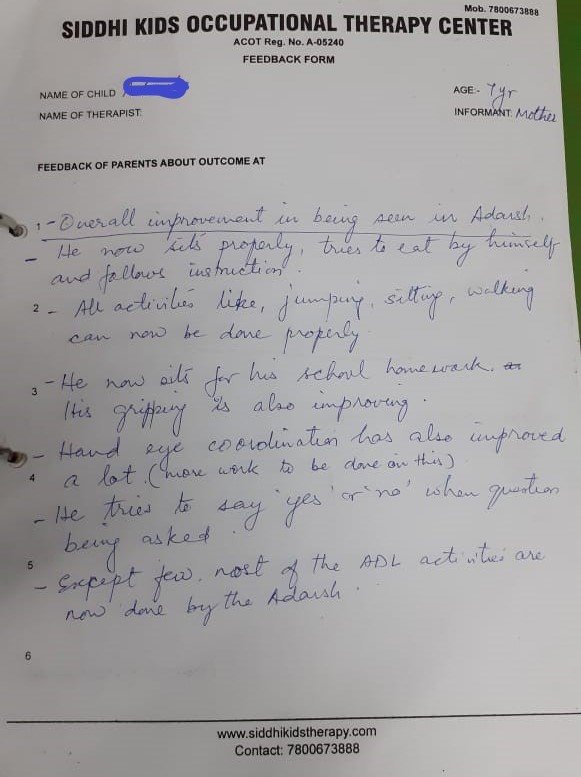 Mob. 7800673888
SIDDHI KIDS OCCUPATIONAL THERAPY CENTER
ACOT Reg. No. A-05240
FEEDBACK FORM
NAME OF CHILD
AGE:- 7yr
NAME OF THERAPIST:
INFORMANT: Mother
FEEDBACK OF PARENTS ABOUT OUTCOME AT
1 - Overall improvement in being seen in Adarsh.
- He now sits properly, tries to eat by himself
and follows instruction.
2 - All activities like, jumping, sitting, walking
can now be done properly.
3 - He now sits for his school homework.
His gripping is also improving.
- Hand eye coordination has also improved
4 a lot. (more work to be done on this)
- He tries to say 'yes' or 'no' when question
being asked.
5
- Except few, most of the ADL activities are
now done by the Adarsh.
6
www.siddhikidstherapy.com
Contact: 7800673888